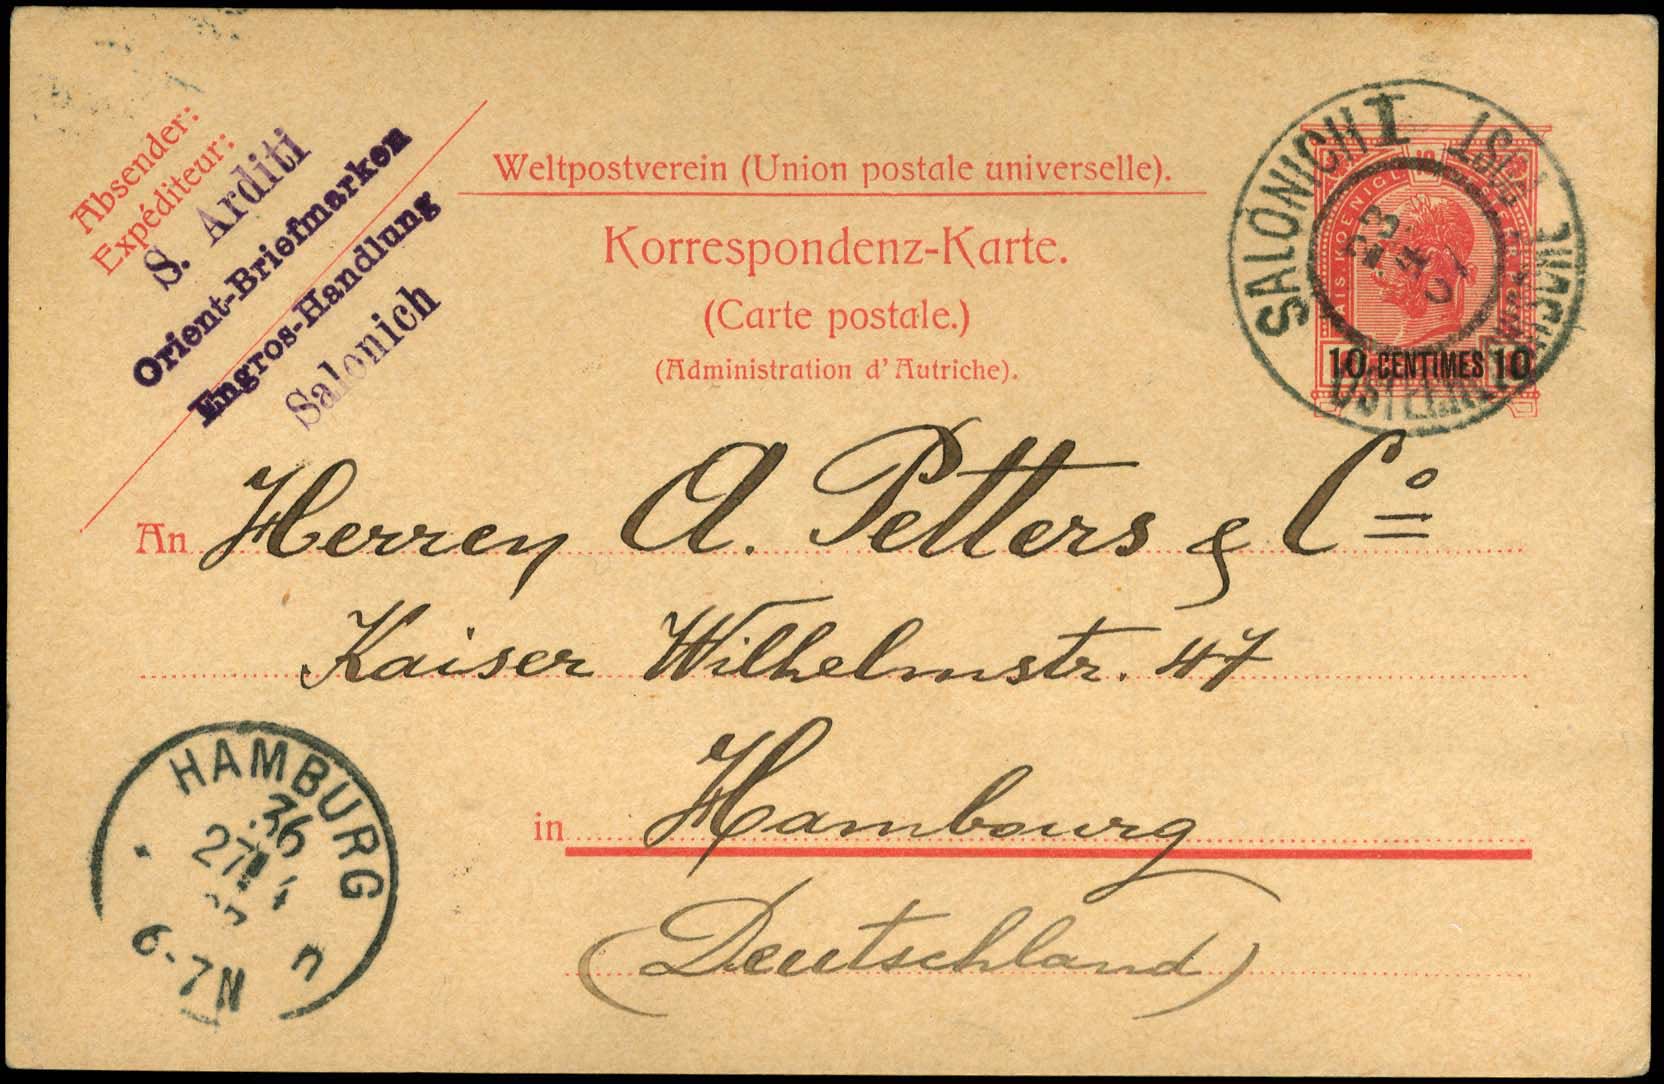 Absender:
Expéditeur:
S. Arditi
Orient-Briefmarken
Engros-Handlung
Salonich
Weltpostverein (Union postale universelle).
Korrespondenz-Karte.
(Carte postale.)
(Administration d'Autriche).
SALONICH I
23
4
10 CENTIMES 10
An Herren A. Petters & Cº
Kaiser Wilhelmstr. 47
in Hambourg
(Deutschland)
HAMBURG
36
27 4
6-7N